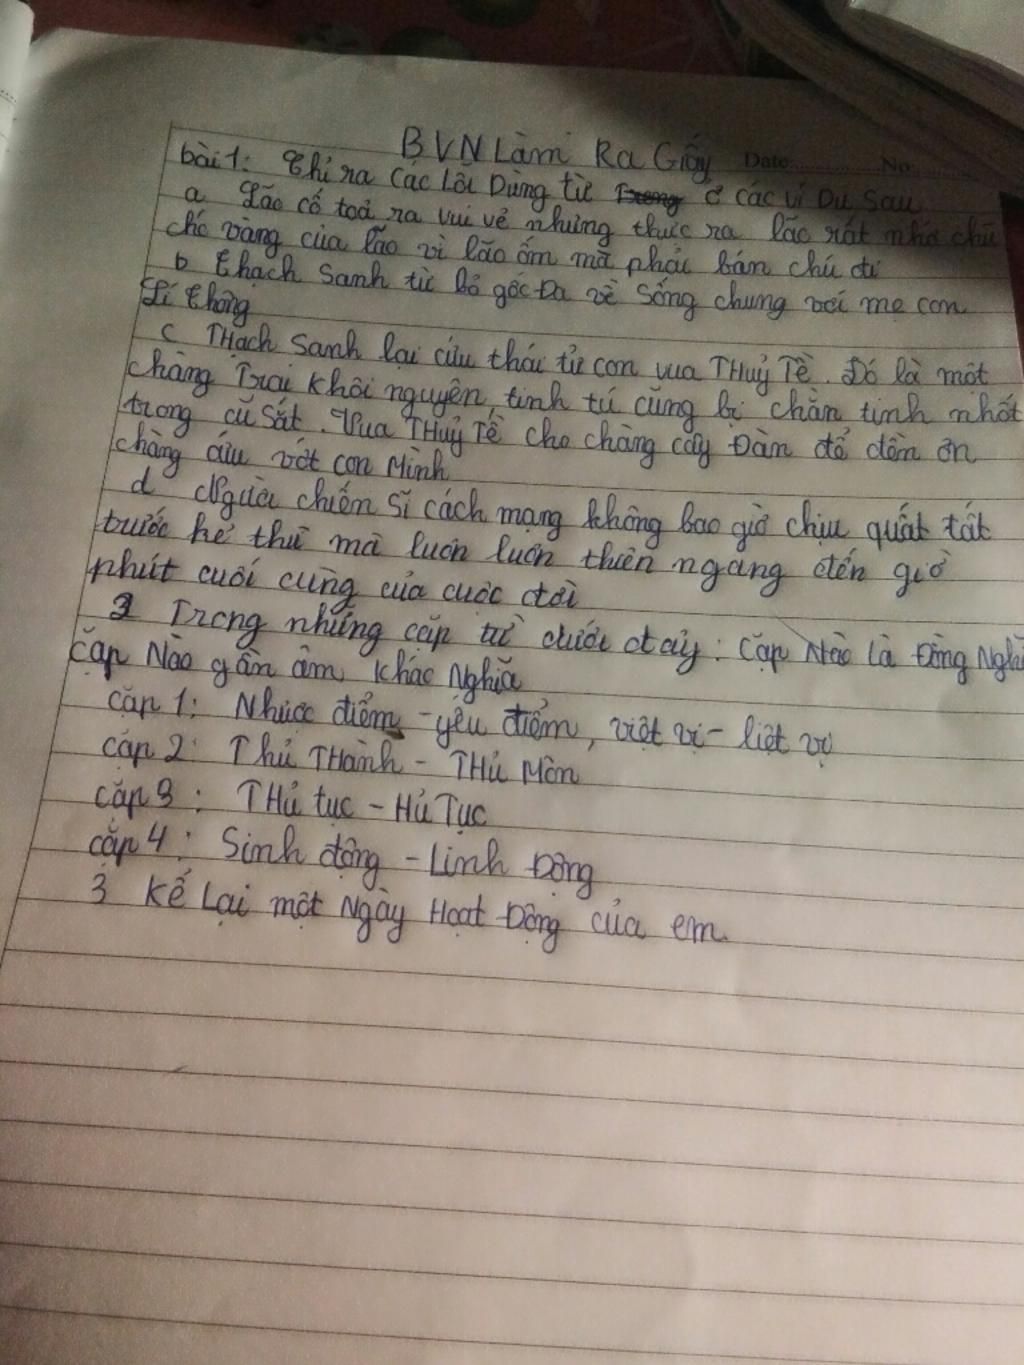 BVN Làm Ra Giấy Date No
bài 1: Chỉ ra Các Lỗi Dùng từ ở các ví Dụ Sau
a Lão cố toả ra vui vẻ nhưng thực ra lão rất nhớ chú
chó vàng của lão vì lão ốm mà phải bán chú đi
b Thạch Sanh từ bỏ gốc Đa về Sống chung với mẹ con
Lí Thông
c THạch Sanh lại cứu thái tử con vua THuỷ Tề. Đó là một
chàng Trai khôi nguyên, tinh tú cũng bị chằn tinh nhốt
trong cũ Sắt. Vua THuỷ Tề cho chàng cây Đàn để đền ơn
chàng cứu vớt con Mình
d Người chiến sĩ cách mạng không bao giờ chịu quất tất
trước kẻ thù mà luôn luôn thiên ngang đến giờ
phút cuối cùng của cuộc đời
2 Trong những cặp từ dưới đây: Cặp Nào Là Đồng Nghĩ
Cặp Nào gần âm khác Nghĩa
cặp 1: Nhược điểm - yếu điểm, việt vị - liệt vị
cặp 2: Thủ THành - THủ Môn
cặp 3: THủ tục - Hủ Tục
cặp 4: Sinh động - Linh Động
3 Kể Lại một Ngày Hoạt Động của em.